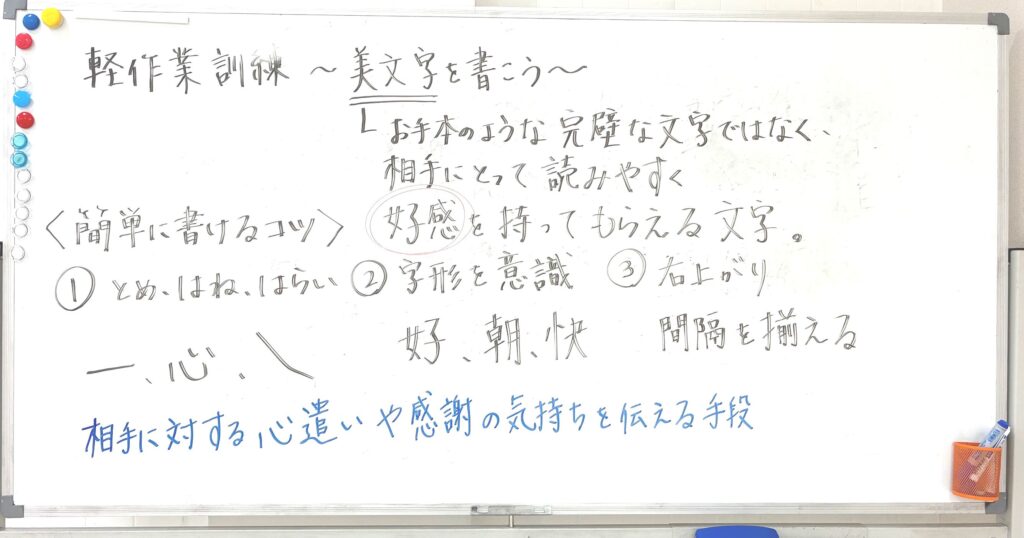 軽作業訓練 ～美文字を書こう～
└ お手本のような完璧な文字ではなく、
相手にとって読みやすく
好感を持ってもらえる文字。
〈簡単に書けるコツ〉
① とめ、はね、はらい ② 字形を意識 ③ 右上がり
一、心、㇏ 好、朝、快 間隔を揃える
相手に対する心遣いや感謝の気持ちを伝える手段